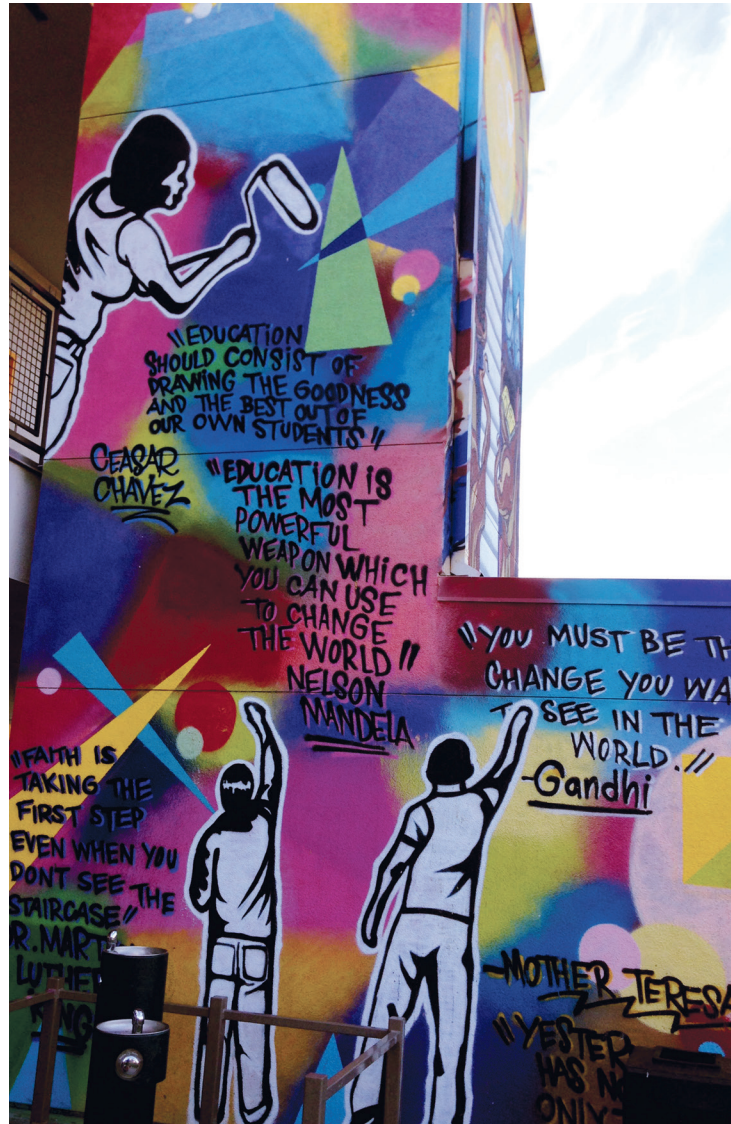 "EDUCATION
SHOULD CONSIST OF
DRAWING THE GOODNESS
AND THE BEST OUT OF
OUR OWN STUDENTS"
CEASAR
CHAVEZ
"EDUCATION IS
THE MOST
POWERFUL
WEAPON WHICH
YOU CAN USE
TO CHANGE
THE WORLD"
NELSON
MANDELA
"YOU MUST BE TH
CHANGE YOU WA
TO SEE IN THE
WORLD."
-Gandhi
"FAITH IS
TAKING THE
FIRST STEP
EVEN WHEN YOU
DONT SEE THE
STAIRCASE"
R. MART
LUTHE
KING
-MOTHER TERESA
"YESTER
HAS N
ONLY